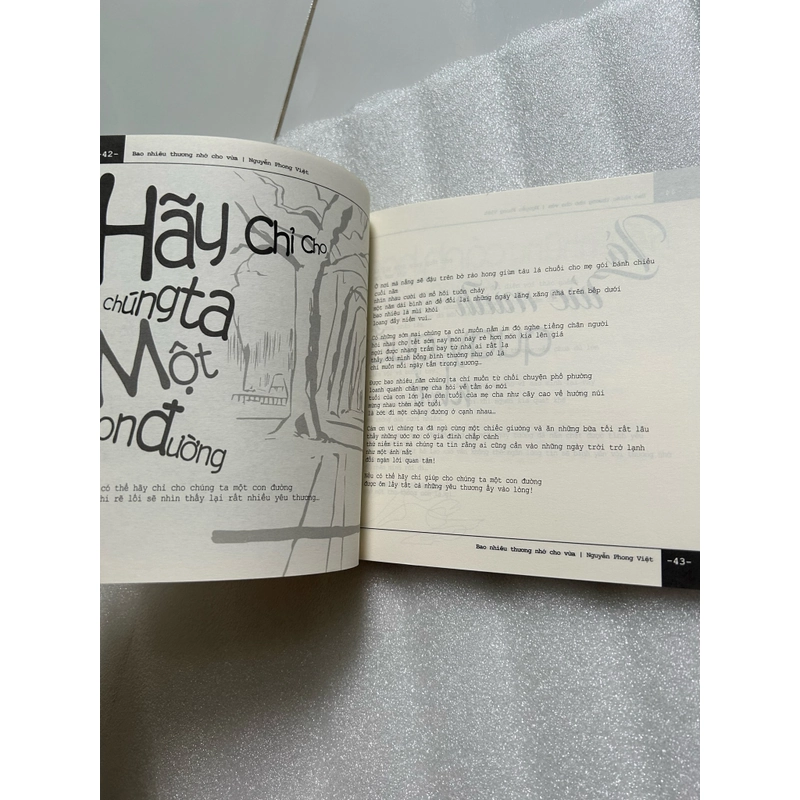 -42-
Bao nhiêu thương nhớ cho vừa | Nguyễn Phong Việt
Hãy Chỉ Cho
chúng ta
Một
đường
có thể hãy chỉ cho chúng ta một con đường
rẽ lối sẽ nhìn thấy lại rất nhiều yêu thương…
Ở nơi mà nắng sẽ đậu trên bờ rào hong giùm tàu lá chuối cho mẹ gói bánh chiều
cuối năm
nhìn nhau cười dù mồ hôi tuôn chảy
một năm dài bình an để đổi lại những ngày lăng xăng nhà trên bếp dưới
bao nhiêu là mùi khói
loang đầy niềm vui…
Có những sớm mai chúng ta chỉ muốn nằm im đó nghe tiếng chân người
nói nhau cho tết sớm nay món này rẻ hơn món kia lên giá
ngửi được nhang trầm bay từ nhà ai rất lạ
thấy đời mình bỗng bình thường như cỏ lá
chỉ muốn mỗi ngày tắm trong sương…
Được bao nhiêu năm chúng ta chỉ muốn từ chối chuyện phố phường
quanh quẩn chân mẹ cha hỏi về tấm áo mới
tuổi của con lớn lên còn tuổi của mẹ cha như cây cao về hướng núi
mừng nhau thêm một tuổi
là bớt đi một chặng đường ở cạnh nhau…
Cảm ơn vì chúng ta đã ngủ cùng một chiếc giường và ăn những bữa tối rất lâu
thấy những ước mơ có gia đình chắp cánh
thứ niềm tin mà chúng ta tin rằng ai cũng cần vào những ngày trời trở lạnh
như một ánh nắt
đổi ngàn lời quan tâm!
Nếu có thể hãy chỉ giúp cho chúng ta một con đường
được ôm lấy tất cả những yêu thương ấy vào lòng!
Bao nhiêu thương nhớ cho vừa | Nguyễn Phong Việt
-43-